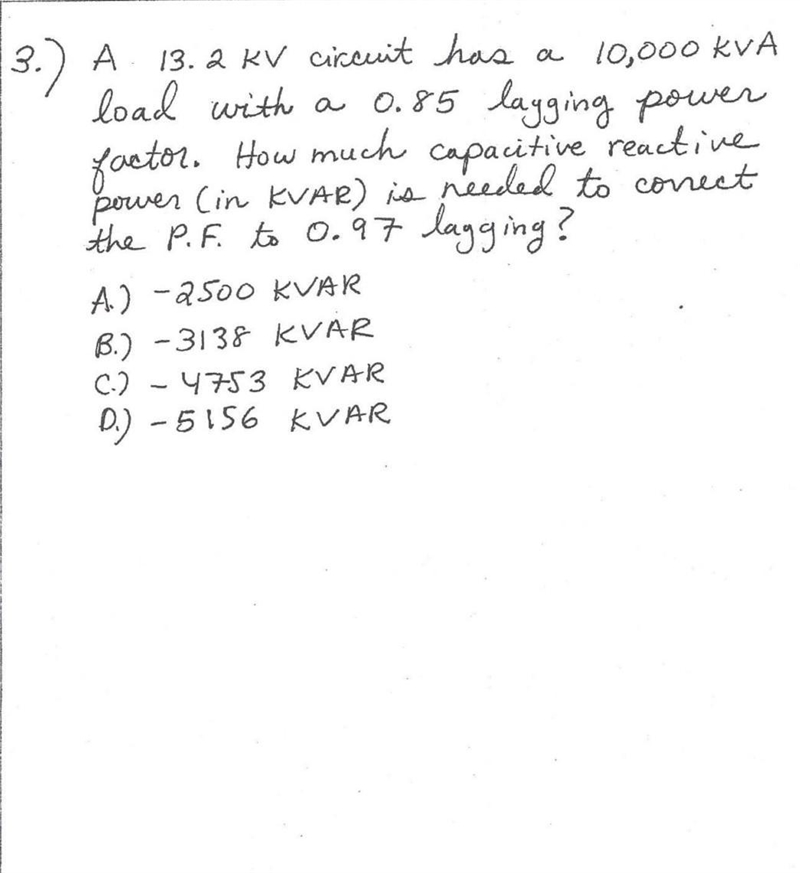 3.) A 13.2 KV circuit has a 10,000 KVA
load with a 0.85 lagging power
factor. How much capacitive reactive
power (in KVAR) is needed to correct
the P.F. to 0.97 lagging?
A.) -2500 KVAR
B.) -3138 KVAR
C.) -4753 KVAR
D.) -5156 KVAR